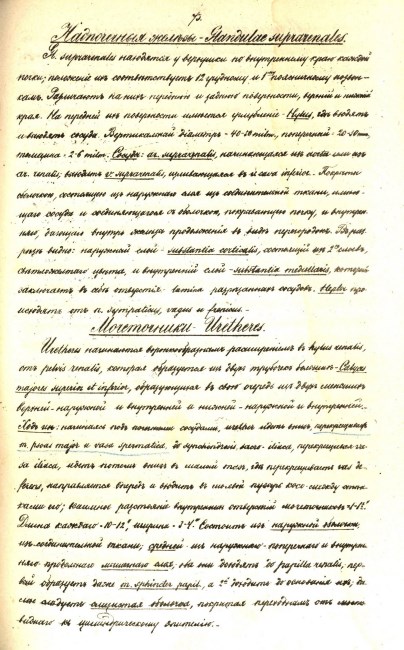 73.
Надпочечныя железы - Glandulae suprarenales.
Gl. suprarenales находятся у верхушки по внутреннему краю каждой
почки; положение их соответствует 12 грудному и 1 поясничному позвон-
кам. Различают на них переднюю и заднюю поверхности, верхний и нижний
края. На передней их поверхности имеется углубление - Hylus, где входят
и выходят сосуды. Вертикальный диаметр - 40-50 milm., поперечный - 20-30 mm,
толщина - 2-6 milm. Сосуды: ar. suprarenalis, начинающаяся из аорты или из
ar. renalis; выходят v. suprarenalis, изливающаяся в v. cava inferior. Покрыты
оболочкою, состоящею из наружнаго слоя из соединительной ткани, имею-
щаго сосуды и соединяющагося с оболочкою, покрывающею почку, и внутрен-
няго, дающаго внутрь железы продолжения в виде перегородок. На раз-
резе видно: наружный слой - substantia corticalis, состоящий из 2х слоев,
светложелтаго цвета, и внутренний слой - substantia medullaris, который
заключает в себе отверстия разрезанных сосудов. Нервы про-
исходят от n. sympaticus, vagus и frenicus.
Мочеточники - Uretheres.
Uretheres начинаются воронкообразным расширением в hylus renalis,
от pelvis renalis, которая образуется из двух трубочек больших - Calyces
majores superior et inferior, образующихся в свою очередь из двух меньших
верхней - наружной и внутренней и нижней - наружной и внутренней.
Ход их: начинаясь под почечными сосудами, urether идет вниз, перекрещивает
m. psoas major и vasa spermatica, до synchondrosis sacro-iliaca, перекрещивает va-
sa iliaca, идет потом вниз в малый таз, где перекрещивает vas de-
ferens, направляется вперед и входит в мочевой пузырь косо между стен-
ками его; взаимное разстояние внутренних отверстий мочеточников 1-1½".
Длина каждаго - 10-12", ширина - 3-4"'. Состоит из наружной оболочки
из соединительной ткани; средней - из наружнаго поперечнаго и внутрен-
няго продольнаго мышечнаго слоя, оба они доходят до papilla renalis, пер-
вый образует даже m. sphincter papil., а 2й доходит до основания их; да-
лее следует слизистая оболочка, покрытая переходным от
виднаго к цилиндрическому эпителию.-